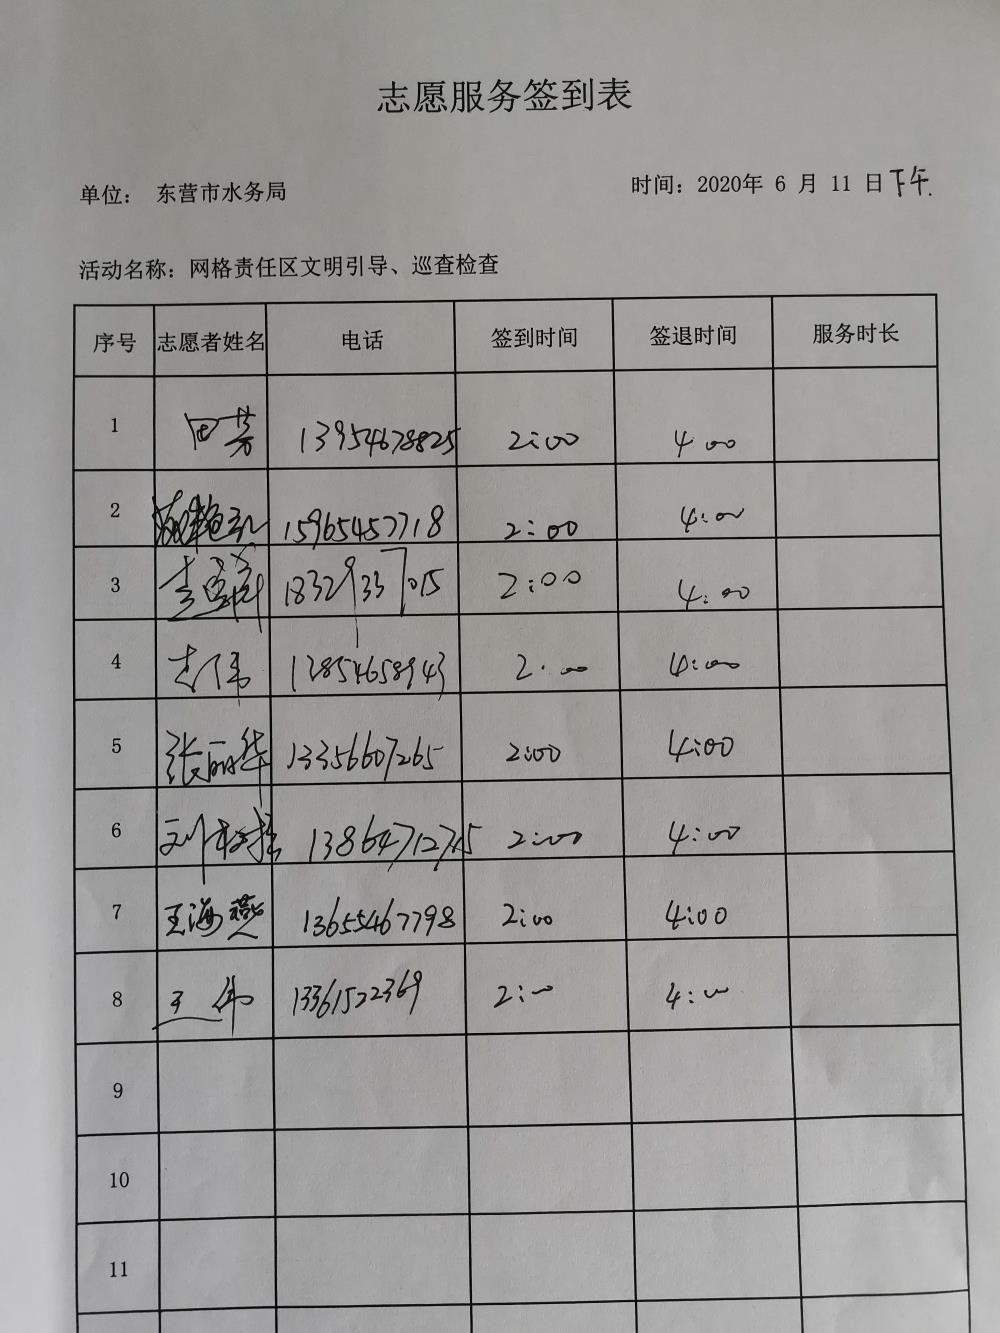 志愿服务签到表
单位： 东营市水务局 时间：2020年 6 月 11 日下午.
活动名称：网格责任区文明引导、巡查检查
序号 志愿者姓名 电话 签到时间 签退时间 服务时长
1 田芳 13954678825 2:00 4 00
2 15965457718 2:00 4:00
3 18329337015 2:00 4:00
4 志伟 13854658943 2:00 4:00
5 张丽华 13356607265 2:00 4:00
6 刘 2:00 4:00
7 王海燕 13655467798 2:00 4:00
8 王伟 13361522369 2:00 4:00
9
10
11